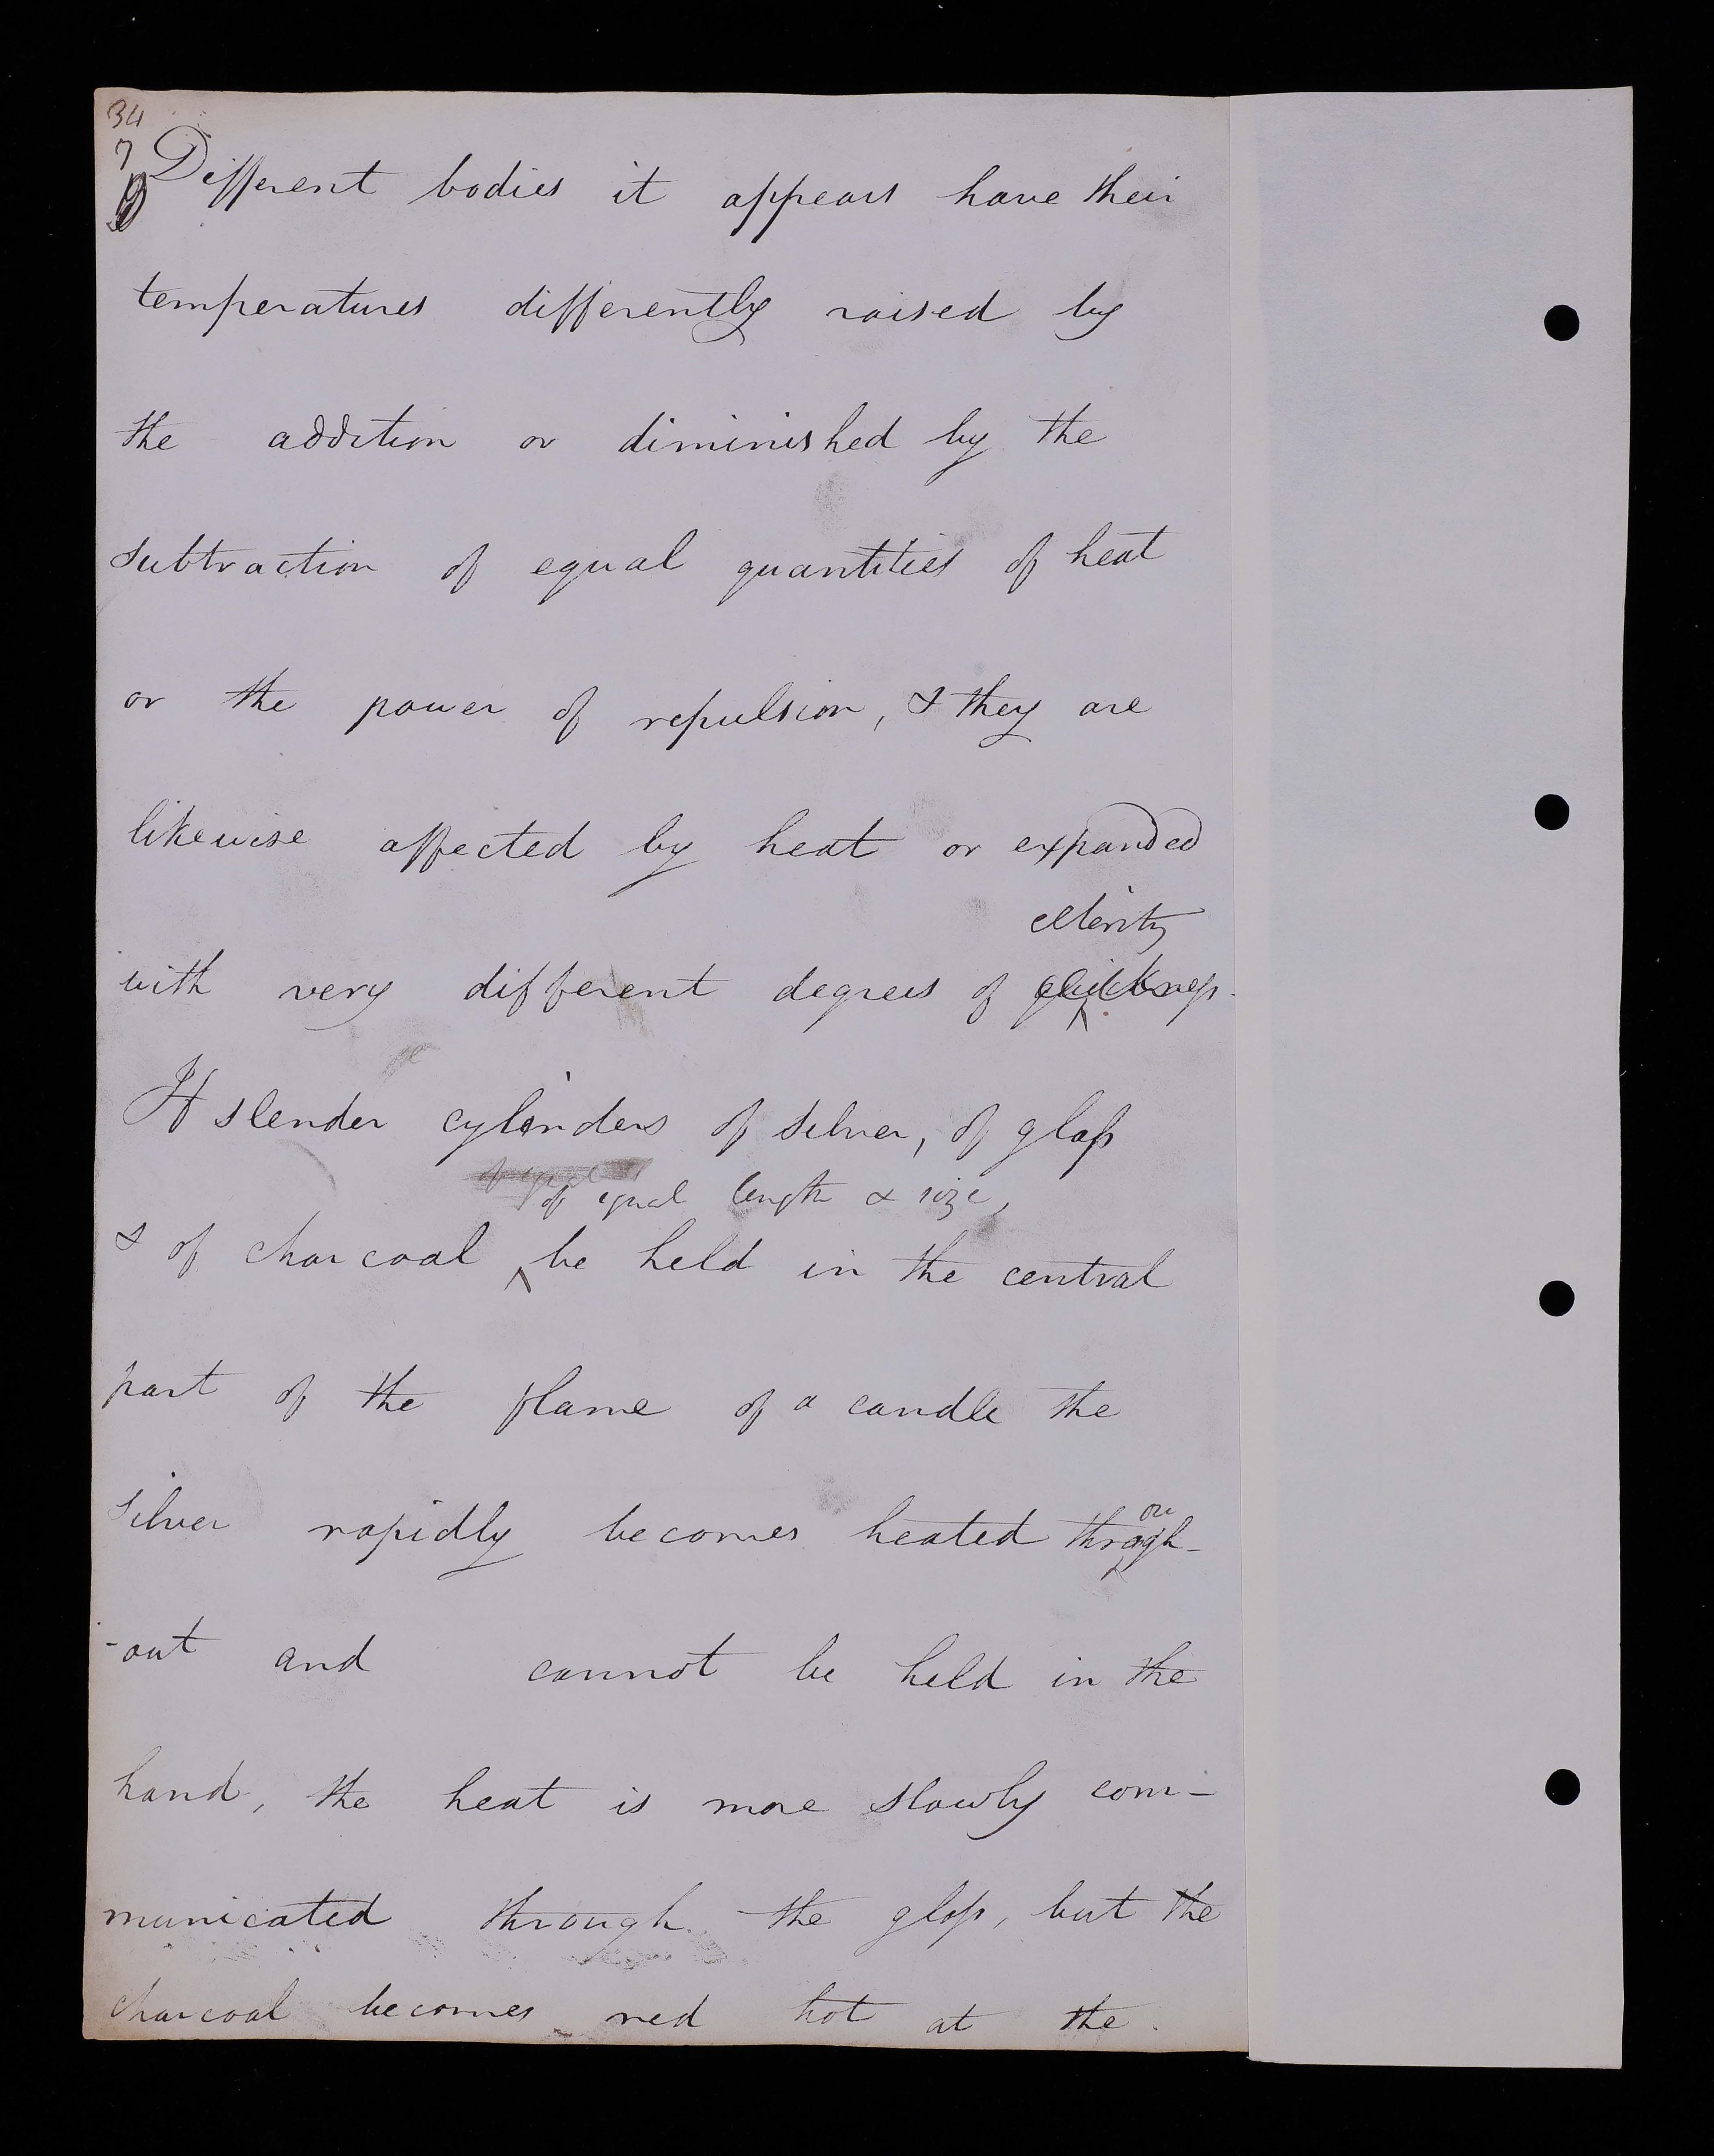 34
7
Different bodies it appears have their
temperatures differently raised by
the addition or diminished by the
subtraction of equal quantities of heat
or the power of repulsion, & they are
likewise affected by heat or expanded
celerity
with very different degrees of quickness.
If slender cylinders of silver, of glass
of equal
of equal length & size,
& of charcoal be held in the central
part of the flame of a candle the
silver rapidly becomes heated through-
-out and cannot be held in the
hand, the heat is more slowly com-
municated through the glass, but the
charcoal becomes red hot at the